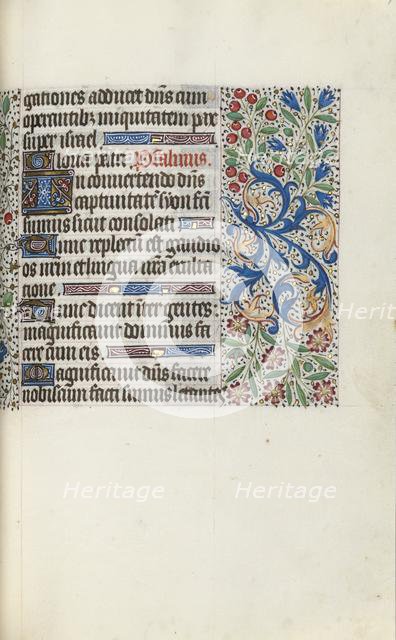 gationes adducet dn̄s cum
operantibꝫ iniquitatem pax
super israel
Gloria patri Psalmus.
In convertendo dn̄s
captivitatē syon fa
simus sicut consolati
Tunc repletū est gaudio
os nrm̄ et lingua nr̄a exulta
cione
Tunc dicent inter gentes:
magnificavit dominus fa
cere cum eis.
Magnificavit dn̄s facere
nobiscum facti sumus letantes
Heritage Heritage
Heritage Heritage
Heritage Heritage